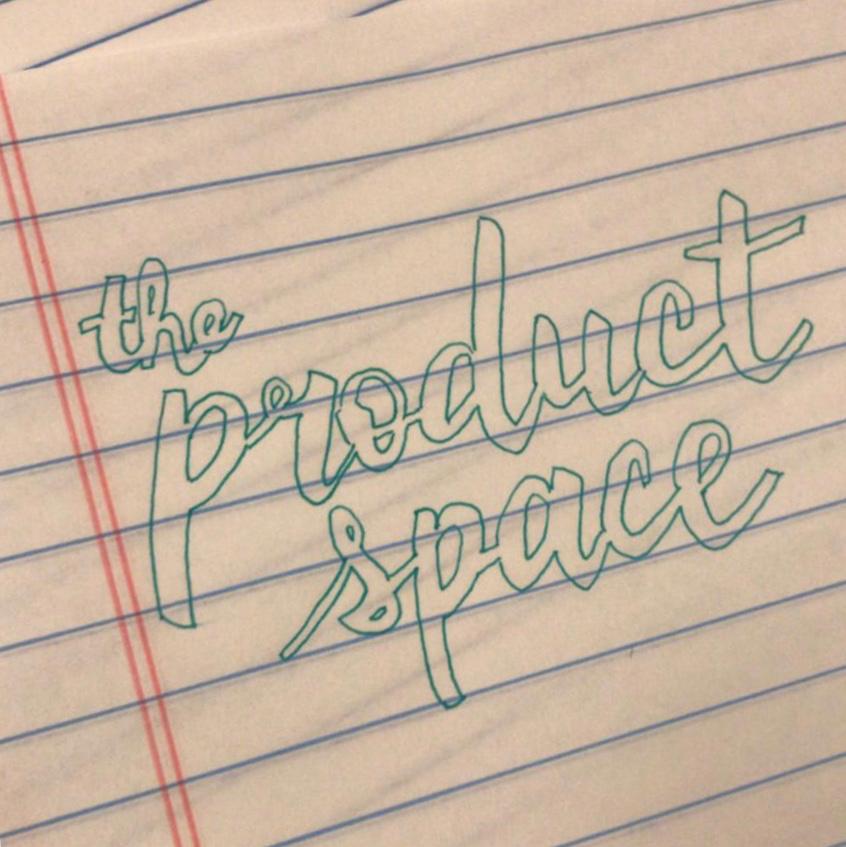 the
product
space